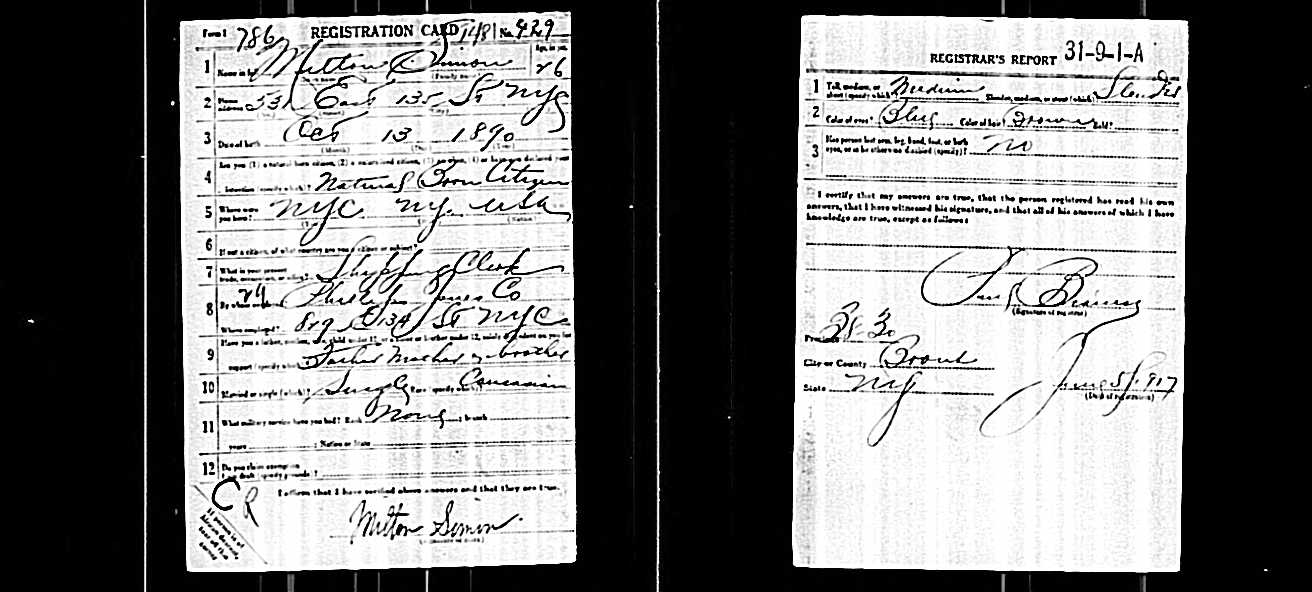 Form 1 786 REGISTRATION CARD 1481 No. 429
1 Name in full Milton Simon Age, in yrs. 26
(Family name)
2 Home address East 135 St NYC
3 Date of birth Oct 13 1890
(Month) (Day) (Year)
4 Are you (1) a natural born citizen, (2) a naturalized citizen, (3) an alien, (4) or have you declared your
intention (specify which)? Natural Born Citizen
5 Where were you born? NYC NY. USA
(Town) (Nation)
6 If not a citizen, of what country are you a citizen or subject?
7 What is your present trade, occupation, or office? Shipping Clerk
8 By whom employed? Phillips Jones Co
Where employed? 134 St NYC
9 Have you a father, mother, wife, child under 12, or a sister or brother under 12, solely dependent on you for
support (specify which)? Father Mother brother
10 Married or single (which)? Single Race (specify which)? Caucasian
11 What military service have you had? Rank None ; branch
years ; Nation or State
12 Do you claim exemption from draft (specify grounds)?
I affirm that I have verified above answers and that they are true.
C R
Milton Simon
If person is of African descent, tear off this corner
REGISTRAR'S REPORT 31-9-1-A
1 Tall, medium, or short (specify which)? Medium Slender, medium, or stout (which)? Slender
2 Color of eyes? Blue Color of hair? Brown Bald?
3 Has person lost arm, leg, hand, foot, or both eyes, or is he otherwise disabled (specify)? No
I certify that my answers are true, that the person registered has read his own
answers, that I have witnessed his signature, and that all of his answers of which I have
knowledge are true, except as follows:
(Signature of registrar)
Precinct
City or County Bronx
State NY June 5/1917
(Date of registration)